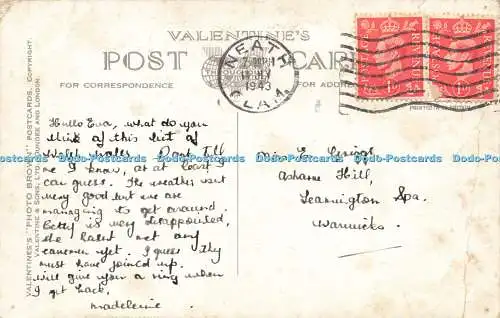 VALENTINE'S
POST CARD
FOR CORRESPONDENCE
FOR ADDRESS
NEATH
1943
GLAM.
REVENUE
REVENUE
VALENTINE'S "PHOTO BROWN" POSTCARDS, COPYRIGHT.
VALENTINE & SONS, LTD. DUNDEE AND LONDON.
Hullo Eva, what do you
think of this bit of
Wales. Don't tell
me I know, or at least I
can guess. The weather isn't
very good but we are
managing to get around.
Betty is very disappointed,
she hasn't met any
yet. I guess they
must have joined up.
will give you a ring when
I get back.
Madeleine.
Miss E.
Hill,
Leamington Spa.
Warwicks.
Dodo-Postcards Dodo-Postcards Dodo-Postcards Dodo-Postcards Dodo-Postcards